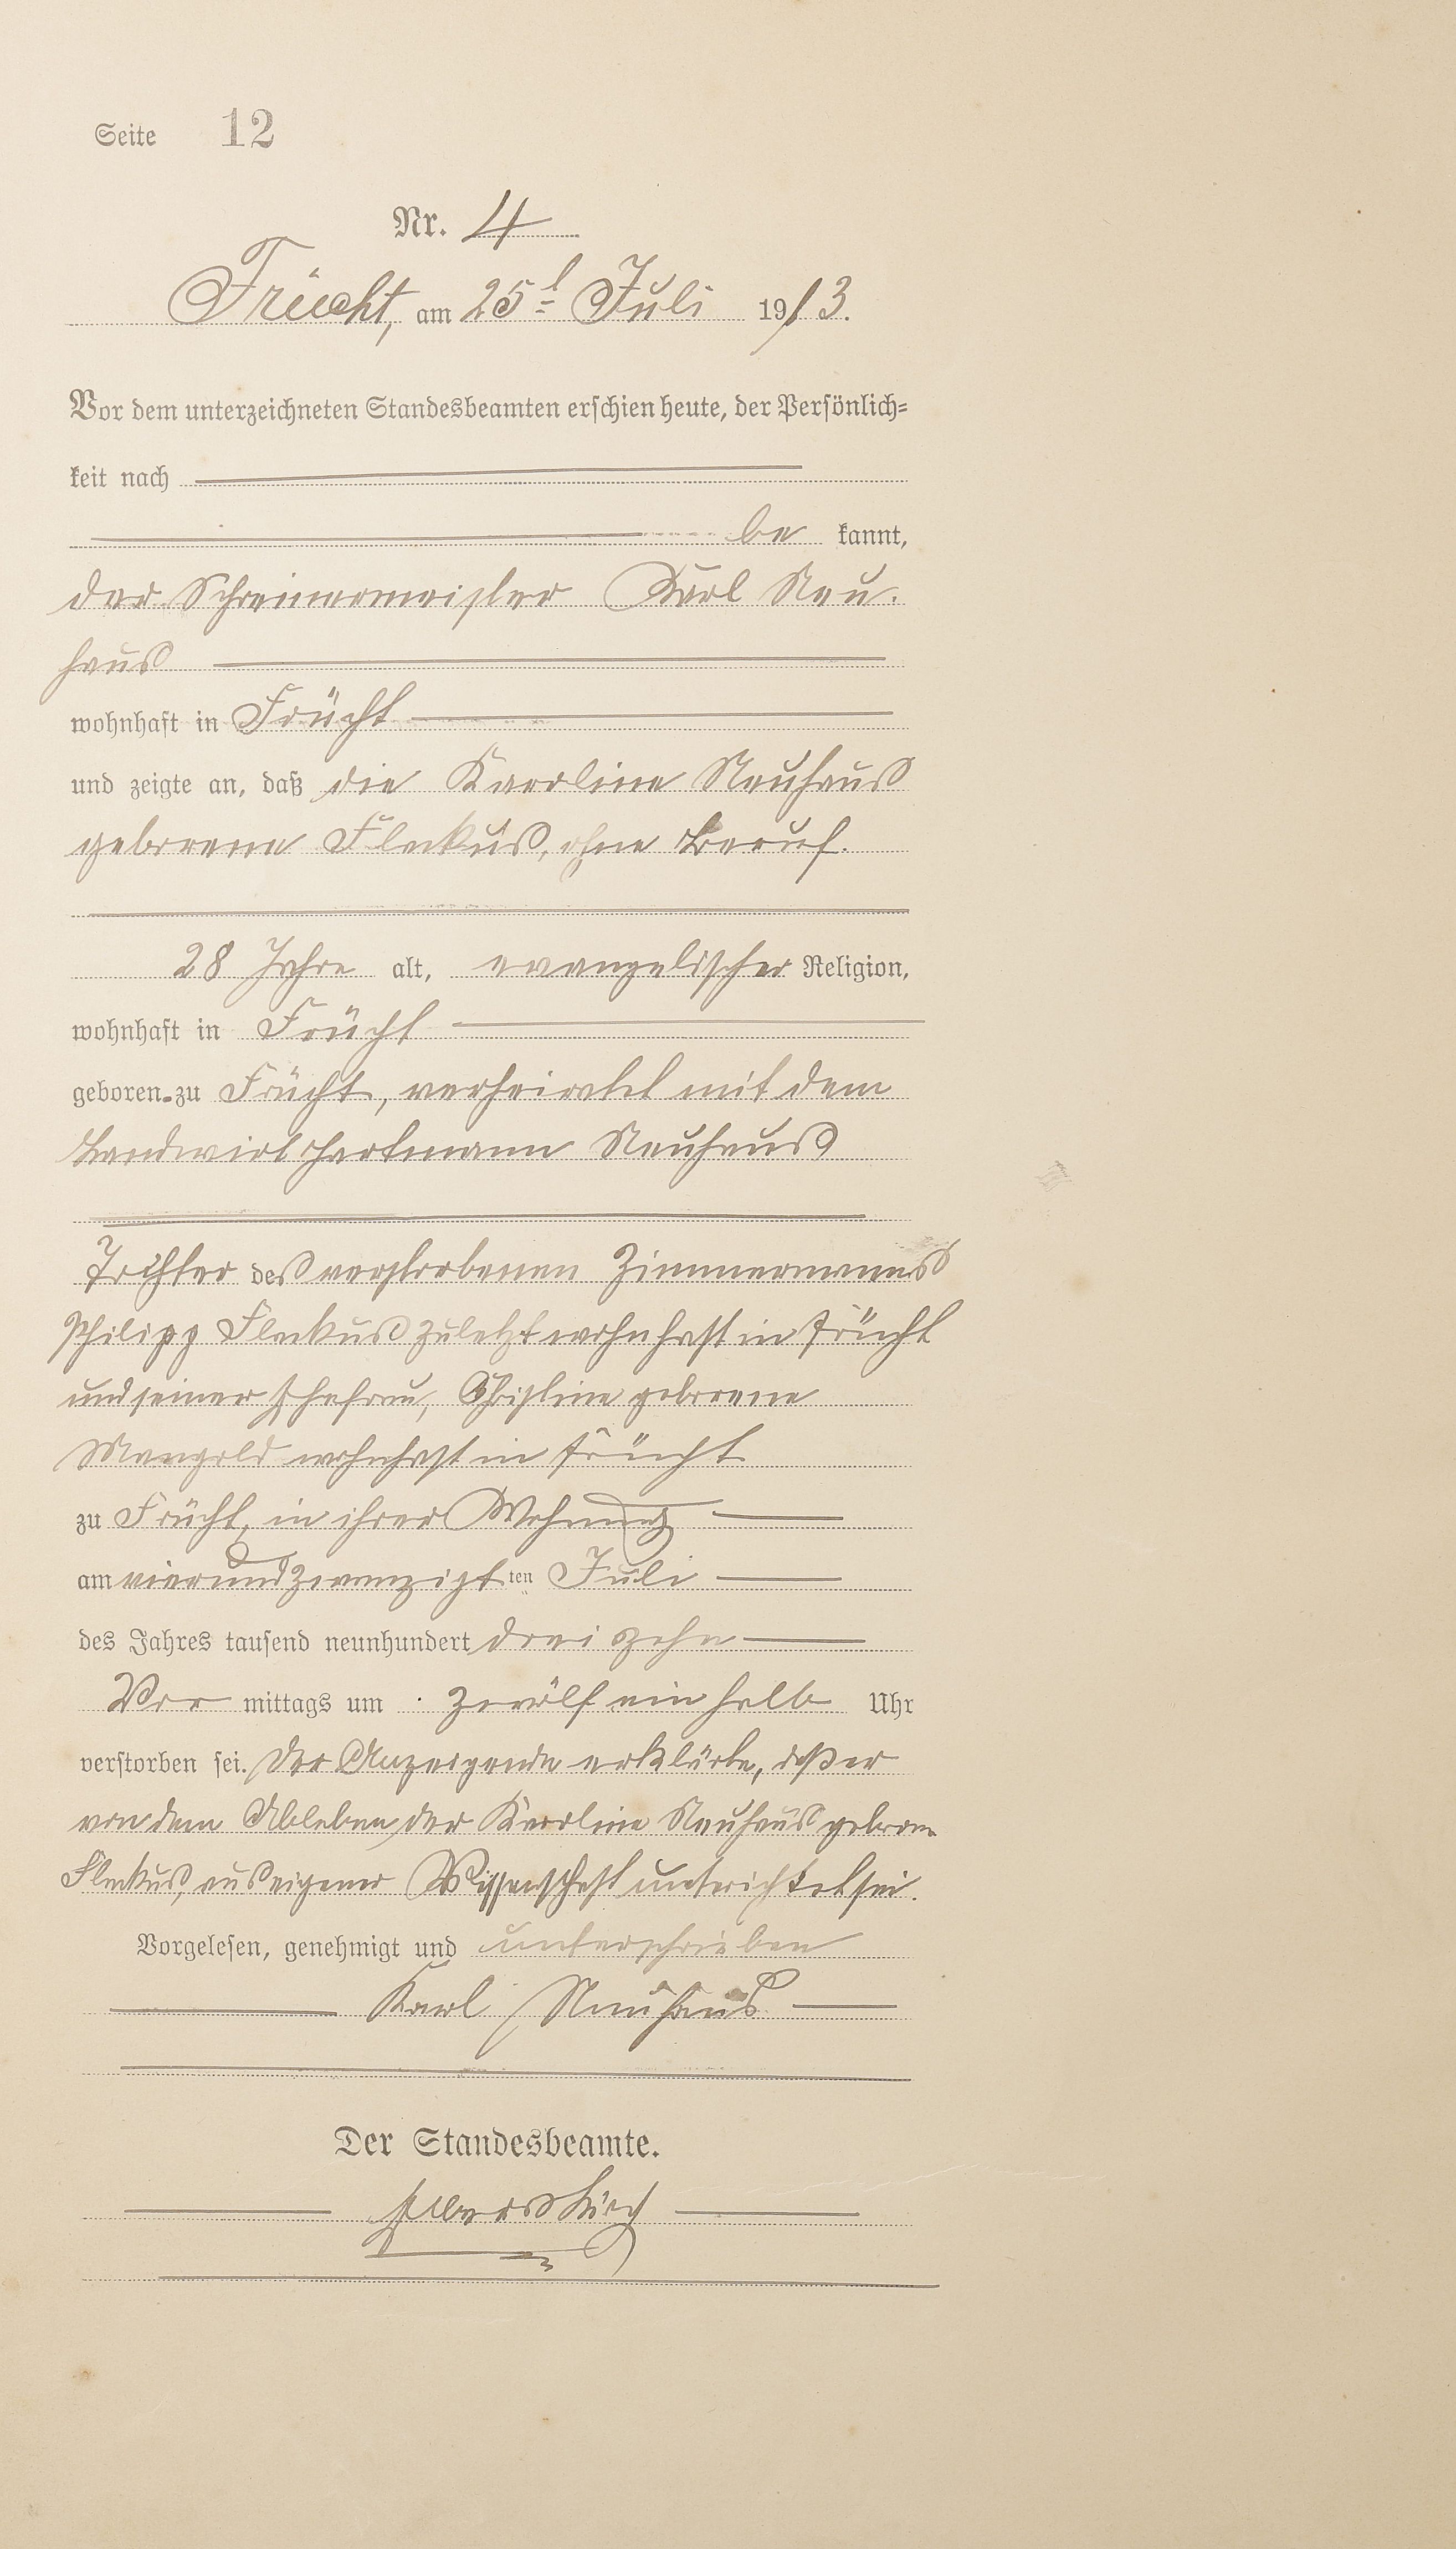 Seite 12
Nr. 4
Frücht, am 25t Juli 1913.
Vor dem unterzeichneten Standesbeamten erschien heute, der Persönlich=
keit nach
be kannt,
der Schreinermeister Karl Neu-
haus
wohnhaft in Frücht
und zeigte an, daß die Karoline Neuhaus
geborene Fleckus, ohne Beruf.
28 Jahre alt, evangelischer Religion,
wohnhaft in Frücht
geboren zu Frücht, verheiratet mit dem
Landwirt Hartmann Neuhaus
Tochter des verstorbenen Zimmermanns
Philipp Fleckus zuletzt wohnhaft in Frücht
und seiner Ehefrau, Christine geborene
Mangold wohnhaft in Frücht
zu Frücht, in ihrer Wohnung
am vierundzwanzigsten Juli
des Jahres tausend neunhundert dreizehn
Vor mittags um zwölf ein halb Uhr
verstorben sei. Der Anzeigende erklärte, daß er
von dem Ableben der Karoline Neuhaus geborene
Fleckus, aus eigener Wissenschaft unterichtet sei.
Vorgelesen, genehmigt und unterschrieben
Karl Neuhaus
Der Standesbeamte.